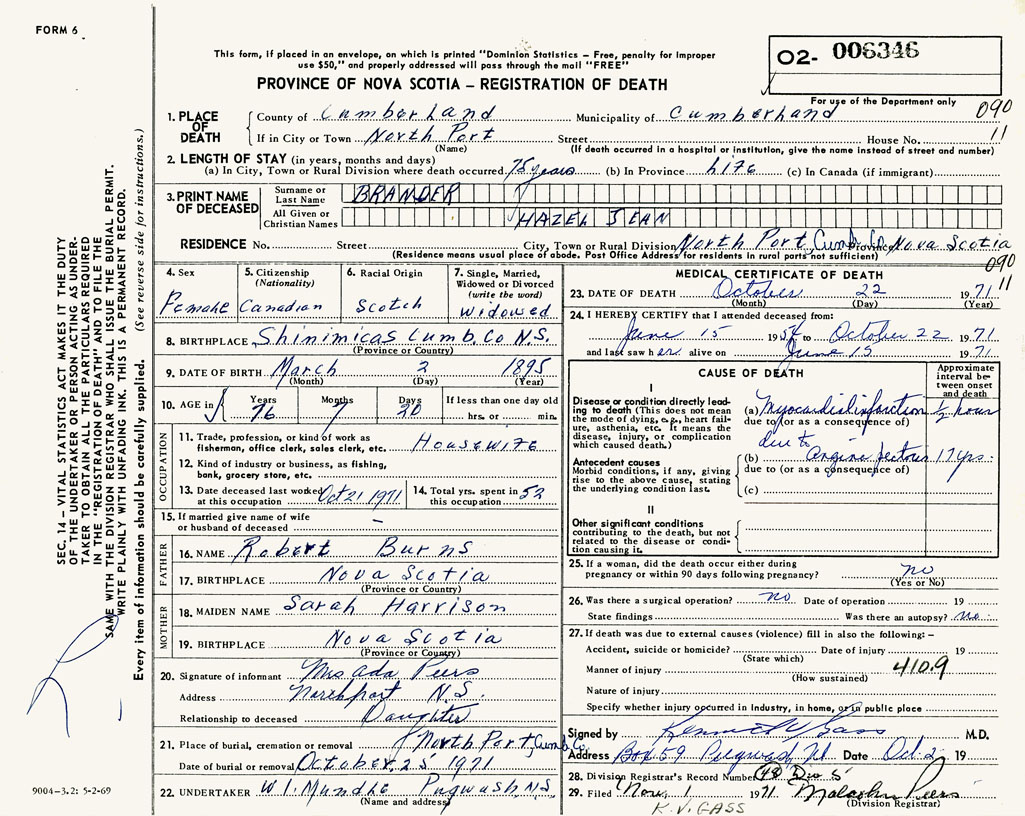 FORM 6
This form, if placed in an envelope, on which is printed "Dominion Statistics – Free, penalty for improper
use $50," and properly addressed will pass through the mail "FREE"
PROVINCE OF NOVA SCOTIA – REGISTRATION OF DEATH
02- 006346
For use of the Department only
090
11
1. PLACE OF DEATH
County of Cumberland Municipality of Cumberland
If in City or Town North Port Street House No.
(Name) (If death occurred in a hospital or institution, give the name instead of street and number)
2. LENGTH OF STAY (in years, months and days)
(a) In City, Town or Rural Division where death occurred 75 years (b) In Province life (c) In Canada (if immigrant)
3. PRINT NAME OF DECEASED
Surname or Last Name BRANDER
All Given or Christian Names HAZEL JEAN
RESIDENCE No. Street City, Town or Rural Division North Port, Cumb. Co. Province Nova Scotia
(Residence means usual place of abode. Post Office Address for residents in rural parts not sufficient)
4. Sex Female
5. Citizenship (Nationality) Canadian
6. Racial Origin Scotch
7. Single, Married, Widowed or Divorced (write the word) Widowed
8. BIRTHPLACE Shinimicas Cumb. Co N.S.
(Province or Country)
9. DATE OF BIRTH March 2 1895
(Month) (Day) (Year)
10. AGE in Years 76 Months 7 Days 20 If less than one day old hrs. or min.
OCCUPATION
11. Trade, profession, or kind of work as
fisherman, office clerk, sales clerk, etc. Housewife
12. Kind of industry or business, as fishing,
bank, grocery store, etc.
13. Date deceased last worked at this occupation Oct 21 1971
14. Total yrs. spent in this occupation 52
15. If married give name of wife
or husband of deceased –
FATHER
16. NAME Robert Burns
17. BIRTHPLACE Nova Scotia
(Province or Country)
MOTHER
18. MAIDEN NAME Sarah Harrison
19. BIRTHPLACE Nova Scotia
(Province or Country)
20. Signature of informant Mrs Ada Peers
Address Northport N.S.
Relationship to deceased Daughter
21. Place of burial, cremation or removal North Port, Cumb. Co.
Date of burial or removal October 25 1971
22. UNDERTAKER Pugwash, N.S.
(Name and address)
MEDICAL CERTIFICATE OF DEATH
090
11
23. DATE OF DEATH October 22 1971
(Month) (Day) (Year)
24. I HEREBY CERTIFY that I attended deceased from:
June 15 19 to October 22 1971
and last saw her alive on June 15 1971
CAUSE OF DEATH
Approximate interval between onset and death
I
Disease or condition directly leading to death (This does not
mean the mode of dying, e.g., heart failure,
asthenia, etc. It means the
disease, injury, or complication
which caused death.)
(a) Myocardial infarction ½ hour
due to (or as a consequence of)
due to
Antecedent causes
Morbid conditions, if any, giving
rise to the above cause, stating
the underlying condition last.
(b) angina pectoris 17 yrs.
due to (or as a consequence of)
(c)
II
Other significant conditions
contributing to the death, but not
related to the disease or condition
causing it.
25. If a woman, did the death occur either during
pregnancy or within 90 days following pregnancy? no
(Yes or No)
26. Was there a surgical operation? no Date of operation 19
State findings Was there an autopsy? no
27. If death was due to external causes (violence) fill in also the following:–
Accident, suicide or homicide? Date of injury 19
(State which)
Manner of injury 410.9
(How sustained)
Nature of injury
Specify whether injury occurred in industry, in home, or in public place
Signed by Kenneth V Gass M.D.
Address Box 59 Pugwash, Date Oct 2 19
28. Division Registrar's Record Number
29. Filed Nov. 1 1971 Malcolm Peers
(Division Registrar)
K.V. GASS
9004-3.2: 5-2-69
SEC. 14 – VITAL STATISTICS ACT MAKES IT THE DUTY
OF THE UNDERTAKER OR PERSON ACTING AS UNDERTAKER
TO OBTAIN ALL THE PARTICULARS REQUIRED
IN THE "REGISTRATION OF DEATH" AND TO FILE THE
SAME WITH THE DIVISION REGISTRAR WHO SHALL ISSUE THE BURIAL PERMIT.
WRITE PLAINLY WITH UNFADING INK. THIS IS A PERMANENT RECORD.
Every item of information should be carefully supplied. (See reverse side for instructions.)